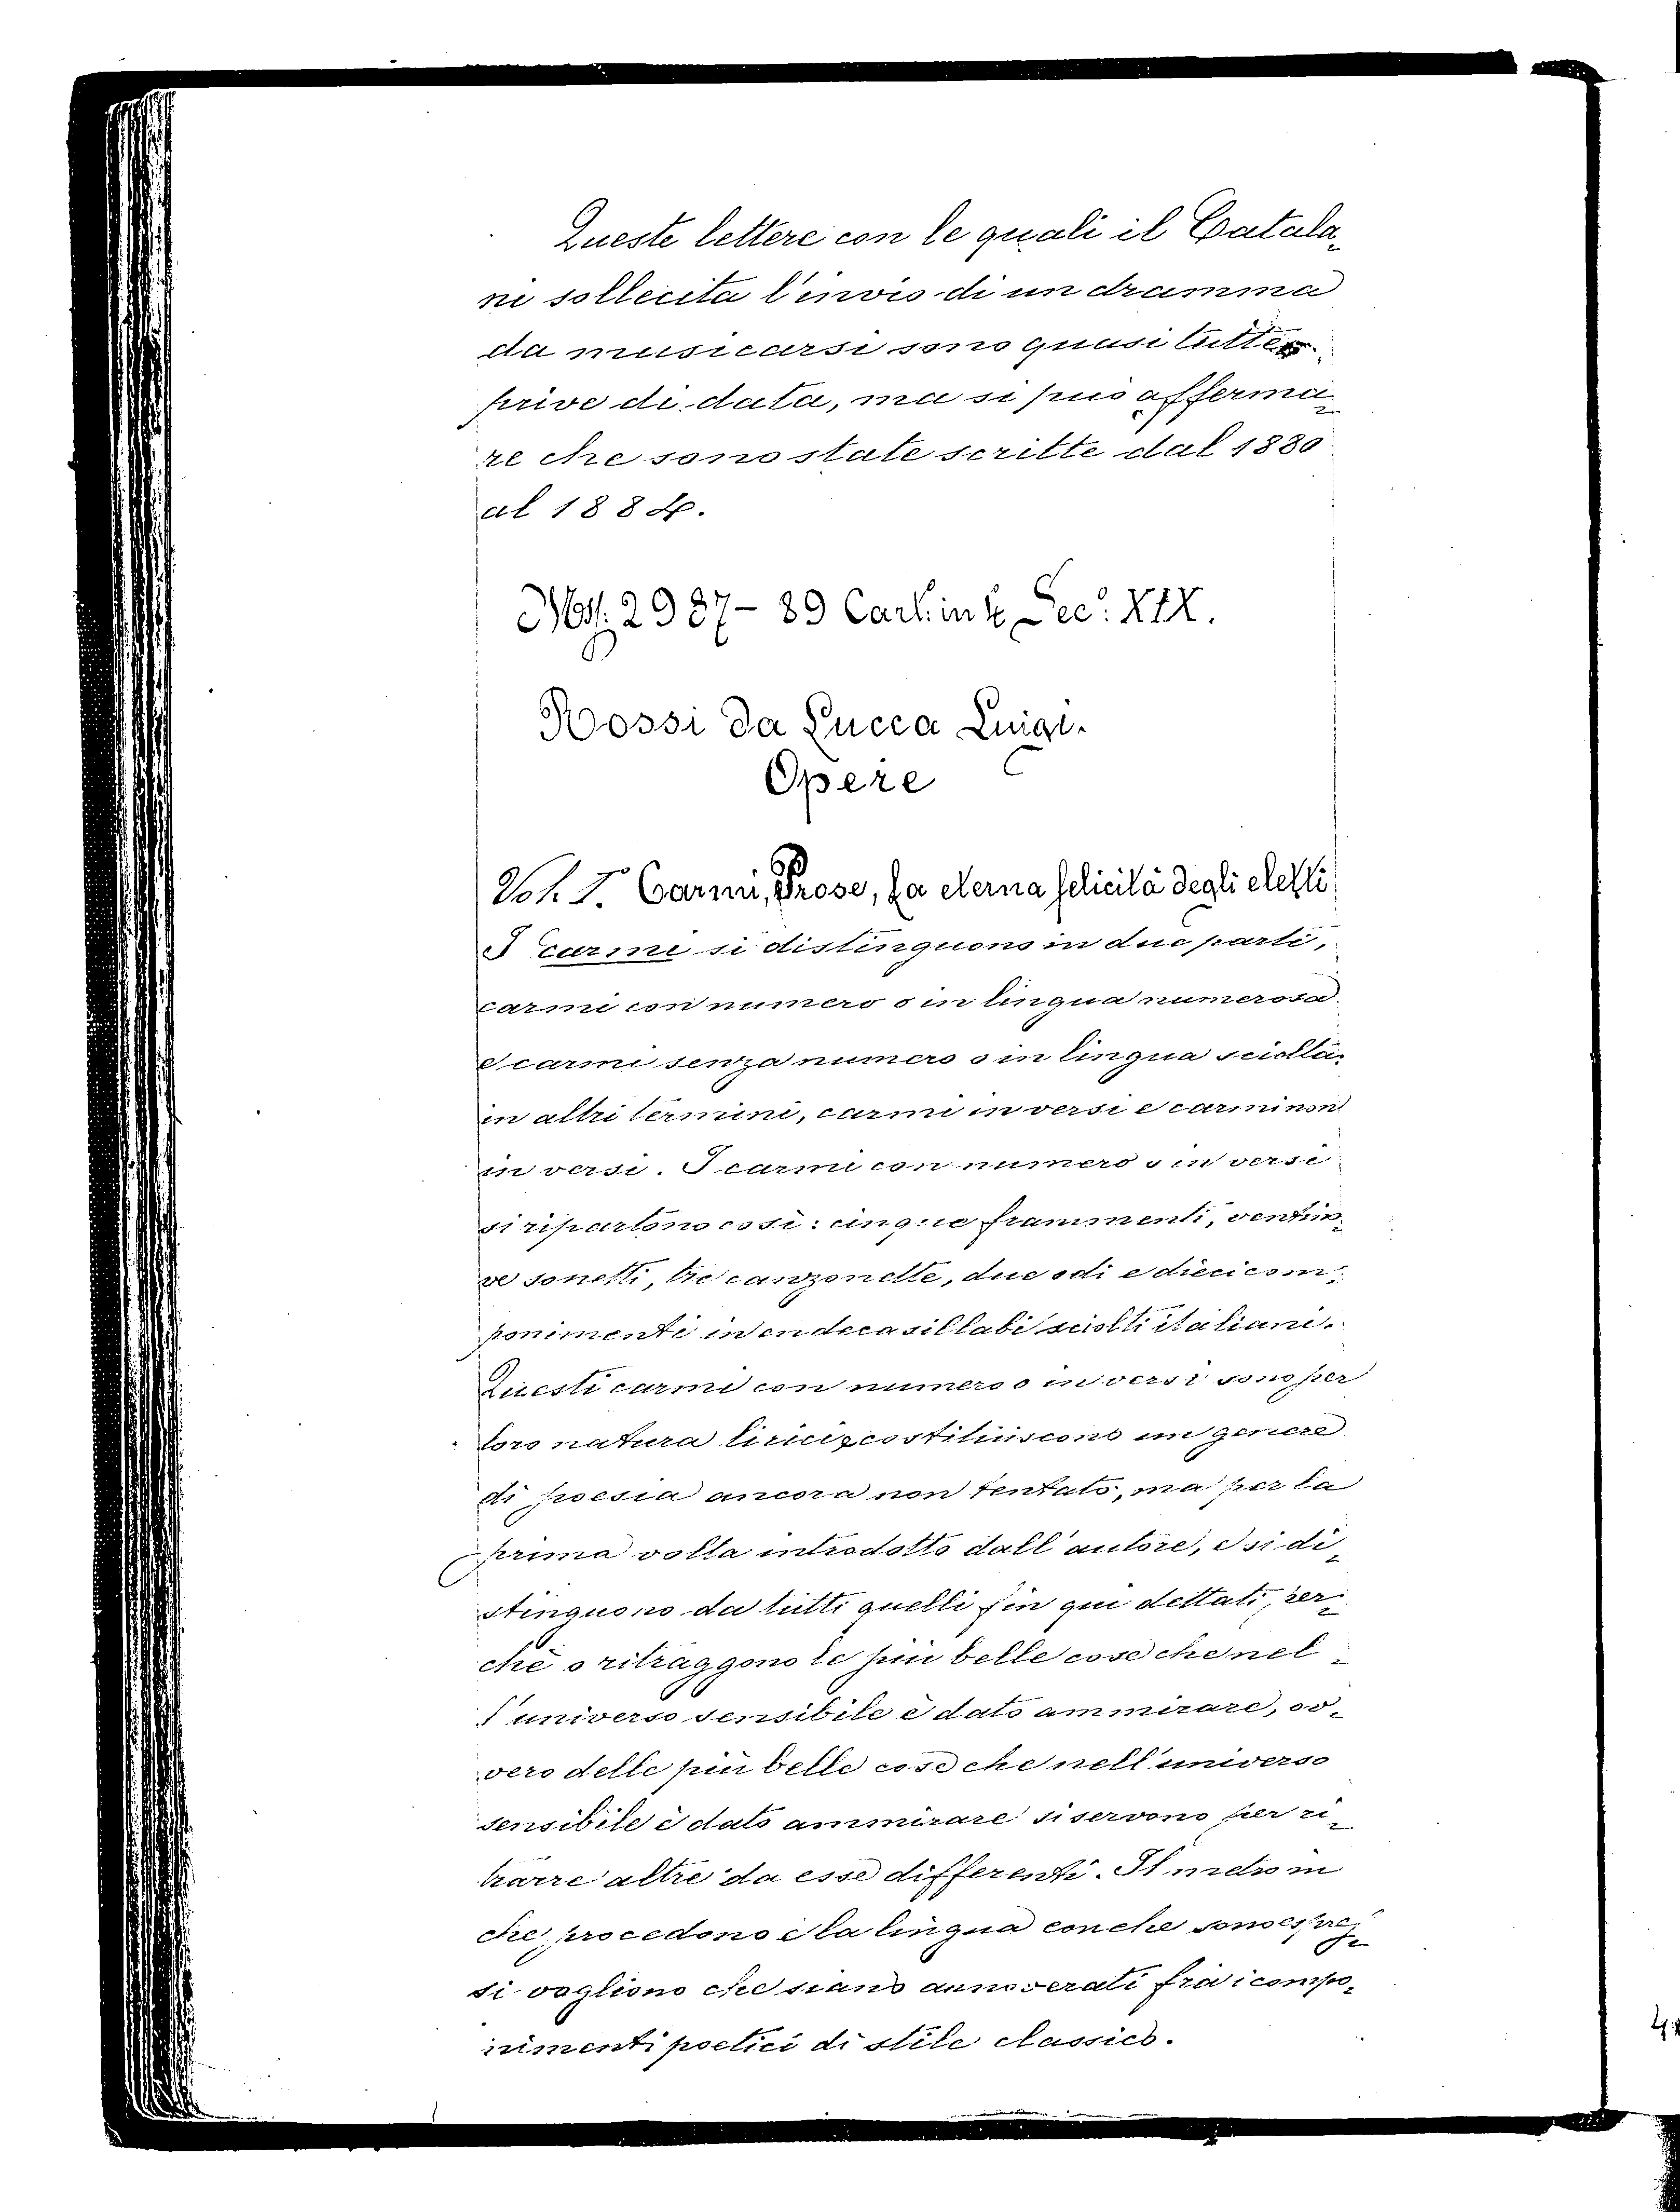 Queste lettere con le quali il Catala-
ni sollecita l'invio di un dramma
da musicarsi sono quasi tutte
prive di data, ma si può afferma-
re che sono state scritte dal 1880
al 1884.
Mss. 2987-89 Cart. in 4. Sec. XIX.
Rossi da Lucca Luigi.
Opere
Vol. I. Carmi, Prose, La eterna felicità degli eletti
I carmi si distinguono in due parti,
carmi con numero o in lingua numerosa
e carmi senza numero o in lingua sciolta,
in altri termini, carmi in versi e carmi non
in versi. I carmi con numero o in versi
si ripartono così: cinque frammenti,
ve sonetti, tre canzonette, due odi e dieci com-
ponimenti in endecasillabi sciolti italiani.
Questi carmi con numero o in versi sono per
loro natura lirici, costituiscono un genere
di poesia ancora non tentato, ma per la
prima volta introdotto dall'autore, e si di-
stinguono da tutti quelli fin qui dettati, per-
chè o ritraggono le più belle cose che nel-
l'universo sensibile è dato ammirare, ov-
vero delle più belle cose che nell'universo
sensibile è dato ammirare si servono per ri-
trarre altre da esse differenti. Il modo in
che procedono e la lingua con che sono espres-
si vogliono che siano annoverati fra i compo-
nimenti poetici di stile classico.